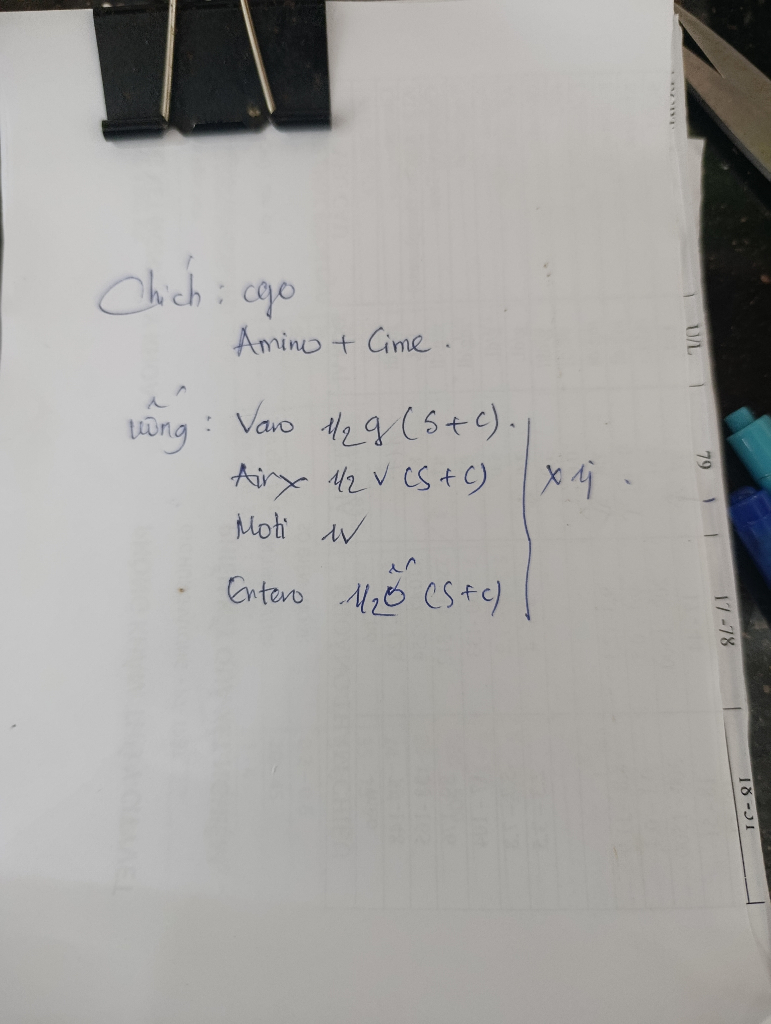 Chích : cgo
Amino + Cime .
uống : Varo 1/2 g (S+C) .
Airx 1/2 v (S+C)
x 1j .
Moti 1v
Entero 1/2 ố (S+C)
U/L
79
17-78
18-51